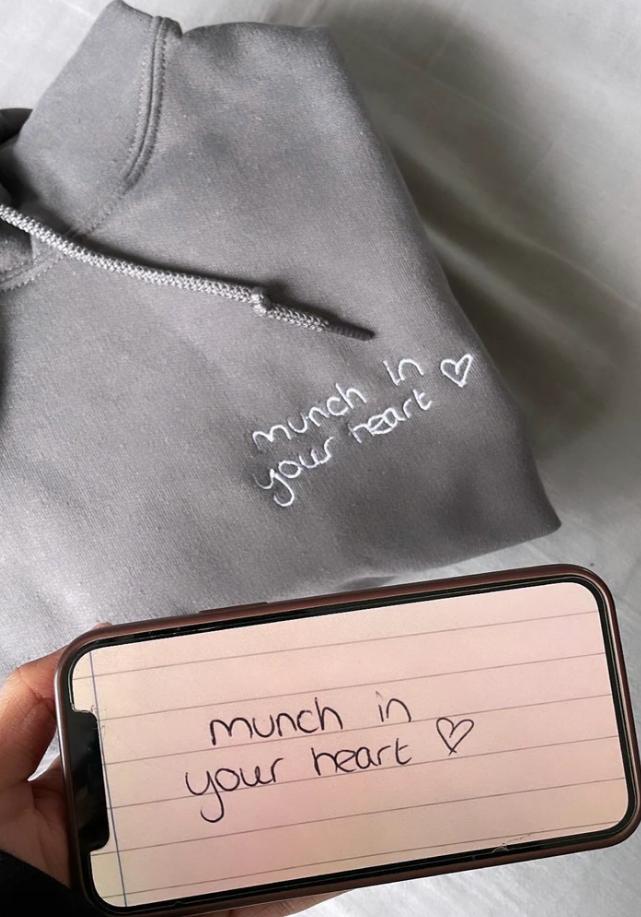 munch in
your heart ♡
munch in
your heart ♡